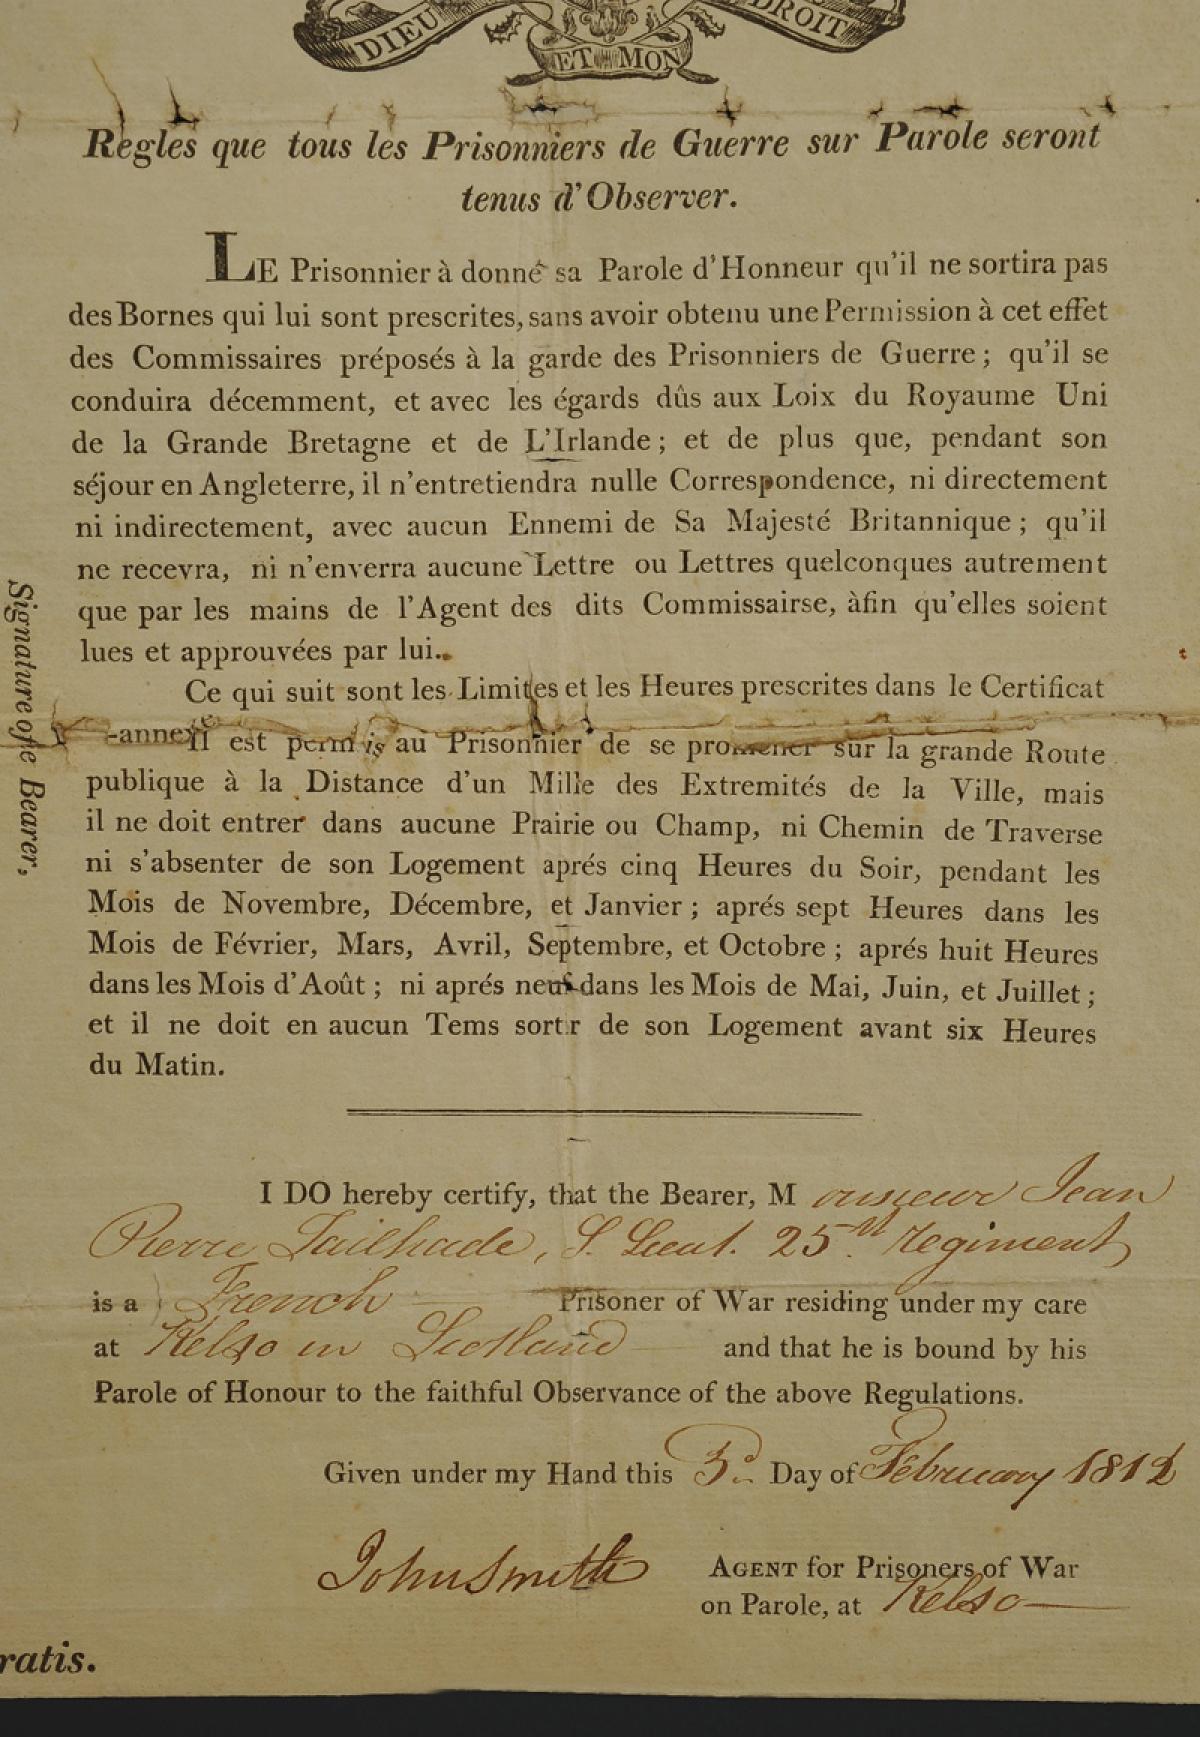 DIEU ET MON DROIT
Regles que tous les Prisonniers de Guerre sur Parole seront
tenus d'Observer.
LE Prisonnier à donné sa Parole d'Honneur qu'il ne sortira pas
des Bornes qui lui sont prescrites, sans avoir obtenu une Permission à cet effet
des Commissaires préposés à la garde des Prisonniers de Guerre; qu'il se
conduira décemment, et avec les égards dûs aux Loix du Royaume Uni
de la Grande Bretagne et de L'Irlande; et de plus que, pendant son
séjour en Angleterre, il n'entretiendra nulle Correspondence, ni directement
ni indirectement, avec aucun Ennemi de Sa Majesté Britannique; qu'il
ne recevra, ni n'enverra aucune Lettre ou Lettres quelconques autrement
que par les mains de l'Agent des dits Commissairse, àfin qu'elles soient
lues et approuvées par lui.
Ce qui suit sont les Limites et les Heures prescrites dans le Certificat
-annexé Il est permis au Prisonnier de se promener sur la grande Route
publique à la Distance d'un Mille des Extremités de la Ville, mais
il ne doit entrer dans aucune Prairie ou Champ, ni Chemin de Traverse
ni s'absenter de son Logement aprés cinq Heures du Soir, pendant les
Mois de Novembre, Décembre, et Janvier; aprés sept Heures dans les
Mois de Février, Mars, Avril, Septembre, et Octobre; aprés huit Heures
dans les Mois d'Août; ni aprés neuf dans les Mois de Mai, Juin, et Juillet;
et il ne doit en aucun Tems sortir de son Logement avant six Heures
du Matin.
I DO hereby certify, that the Bearer, Monsieur Jean
Pierre Tailhade, S. Lieut. 25th Regiment
is a French Prisoner of War residing under my care
at Kelso in Scotland and that he is bound by his
Parole of Honour to the faithful Observance of the above Regulations.
Given under my Hand this 3d. Day of February 1812
John Smith AGENT for Prisoners of War
on Parole, at Kelso
ratis.
Signature of the Bearer,